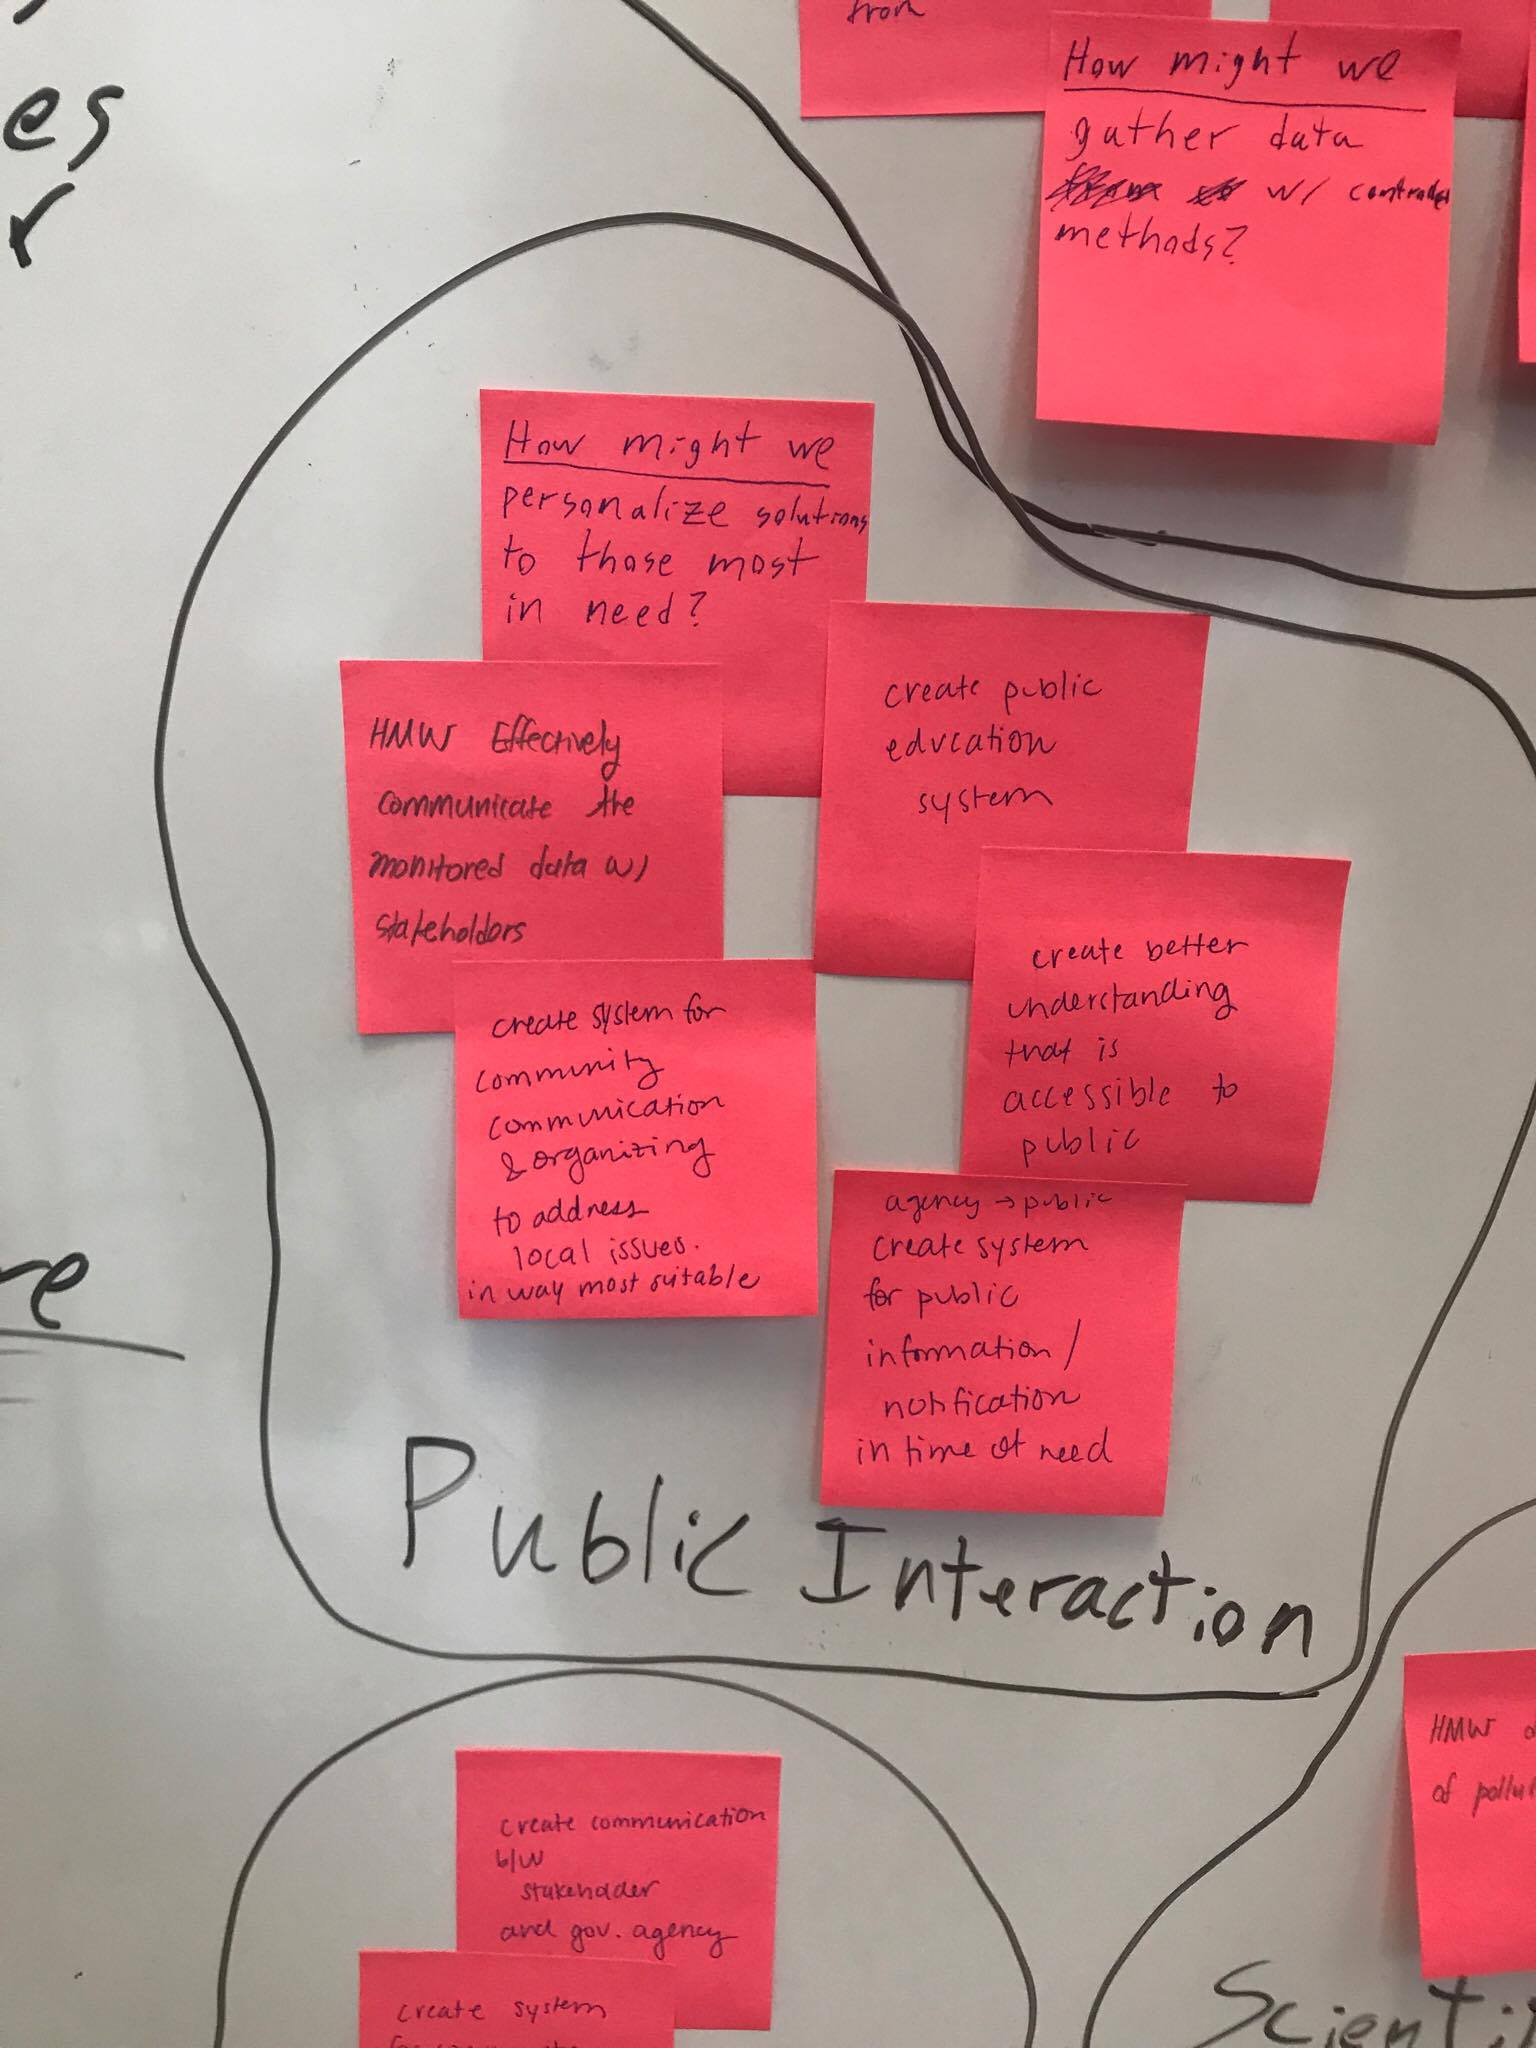 es
r
from
How might we
gather data
w/
methods?
How might we
personalize solutions
to those most
in need?
HMW Effectively
communicate the
monitored data w/
stakeholders
create public
education
system
create better
understanding
that is
accessible to
public
create system for
community
communication
& organizing
to address
local issues.
in way most suitable
agency → public
create system
for public
information /
notification
in time of need
re
Public Interaction
create communication
b/w
stakeholder
and gov. agency
create system
HMW
of pollu
Scienti